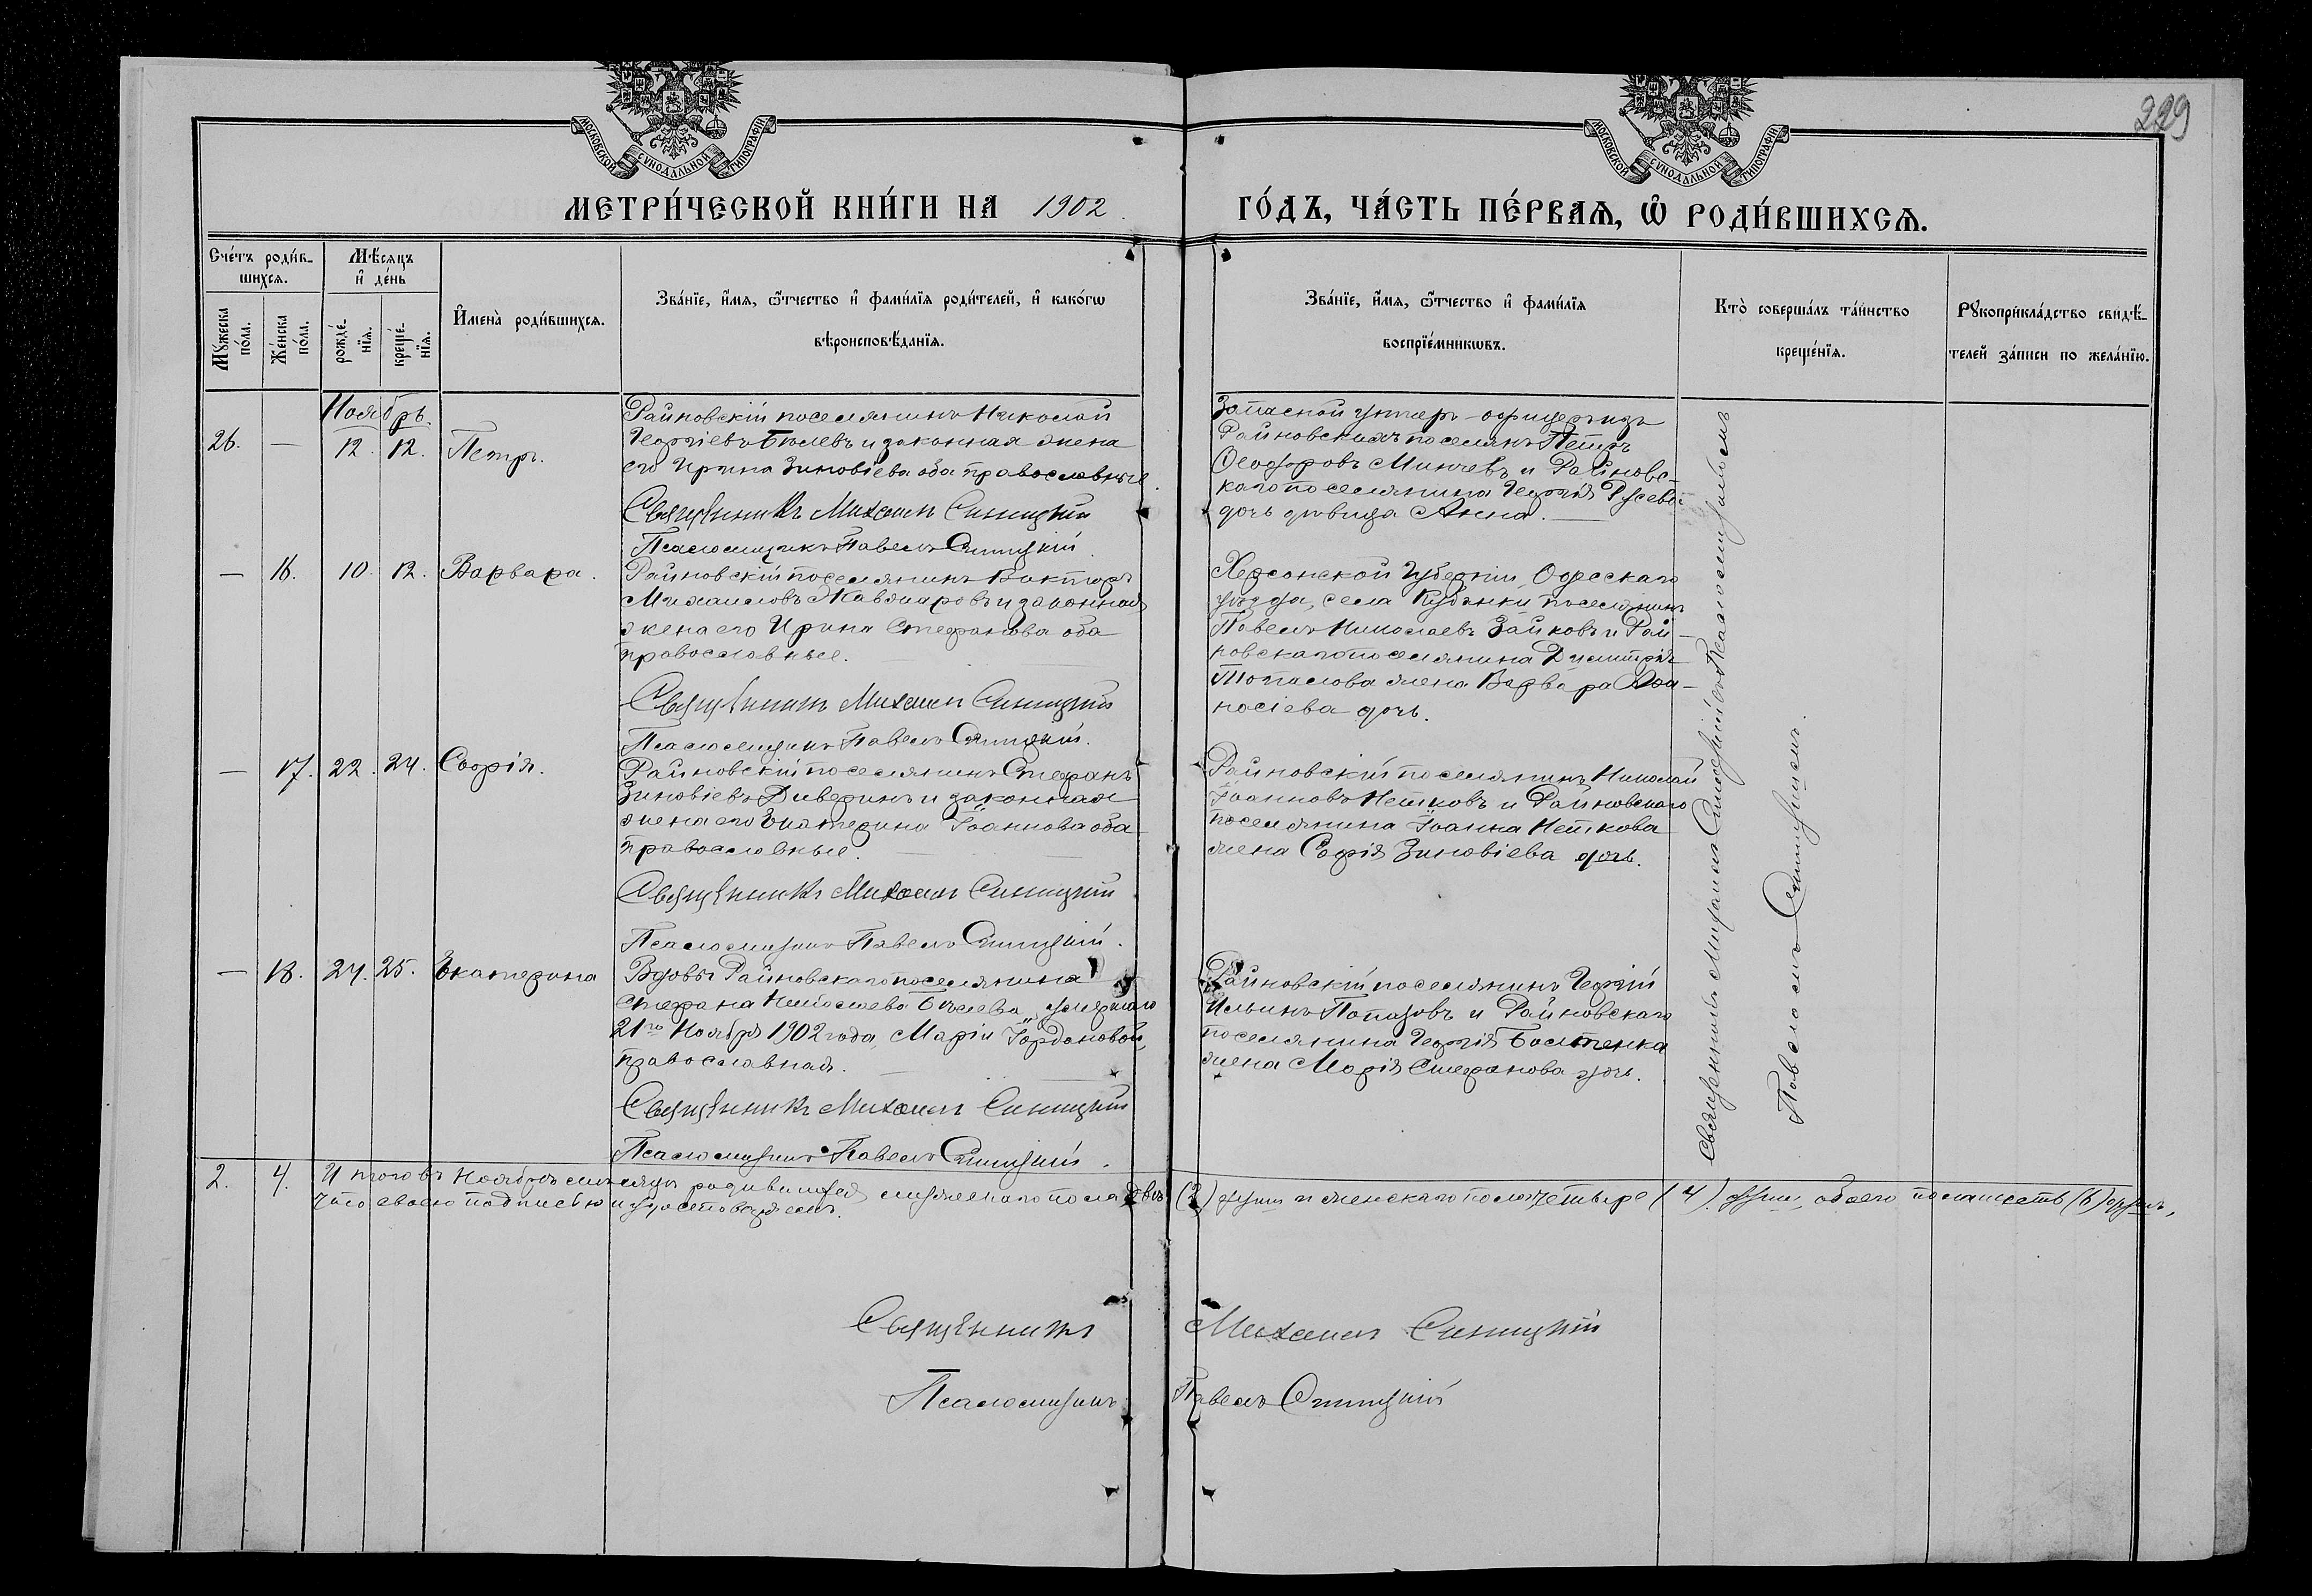 МОСКОВСКОЙ СѴНОДАЛЬНОЙ ТИПОГРАФІИ
МОСКОВСКОЙ СѴНОДАЛЬНОЙ ТИПОГРАФІИ
229
МЕТРИ́ЧЕСКОЙ КНИ́ГИ НА 1902
ГО́ДЪ, ЧА́СТЬ ПЕ́РВАѦ, Ѽ РОДИ́ВШИХСѦ.
Сче́тъ роди́в-
шихсѧ.
Мꙋ́жеска по́ла.
Же́нска по́ла.
Мѣ́сѧцъ
и҆ де́нь
рожде́-
нїѧ.
креще́-
нїѧ.
И҆мена̀ роди́вшихсѧ.
Зва́нїе, и҆́мѧ, ѻ҆́тчество и҆ фами́лїѧ роди́телей, и҆ како́гѡ
вѣроисповѣ́данїѧ.
Зва́нїе, и҆́мѧ, ѻ҆́тчество и҆ фами́лїѧ
воспрїе́мникѡвъ.
Кто̀ соверша́лъ та́инство
креще́нїѧ.
Рꙋкоприкла́дство свидѣ́-
телей за́писи по жела́нїю.
Ноябрь.
26. — 12. 12. Петръ.
Райновскій поселянинъ Николай
Георгіевъ Бѣлевъ и законная жена
его Ирина Зиновіева оба православные.
Священникъ Михаилъ Синицкій
Псаломщикъ Павелъ Синицкій.
Запасной унтеръ-офицеръ изъ
Райновскихъ поселянъ Петръ
Ѳеодоровъ Минчевъ и Райновс-
каго поселянина Георгія Русева
дочь дѣвица Анна.
— 16. 10. 12. Варвара.
Райновскій поселянинъ Викторъ
Михаиловъ Жавянаровъ и законная
жена его Ирина Стефанова оба
православные.
Священникъ Михаилъ Синицкій
Псаломщикъ Павелъ Синицкій.
Херсонской Губерніи, Одесскаго
уѣзда, села Кубанки поселянинъ
Павелъ Николаевъ Зайковъ и Рай-
новскаго поселянина Димитрія
Топалова жена Варвара Аѳа-
насіева дочь.
— 17. 22. 24. Софія.
Райновскій поселянинъ Стефанъ
Зиновіевъ Диверинъ и законная
жена его Екатерина Іоаннова оба
православные.
Священникъ Михаилъ Синицкій
Псаломщикъ Павелъ Синицкій.
Райновскій поселянинъ Николай
Іоанновъ Нетковъ и Райновскаго
поселянина Іоанна Неткова
жена Софія Зиновіева дочь.
— 18. 24. 25. Екатерина
Вдовы Райновскаго поселянина
Стефана Николаева Бѣлева, умершаго
21го Ноября 1902 года, Маріи Іордановой,
православная.
Священникъ Михаилъ Синицкій
Псаломщикъ Павелъ Синицкій.
Райновскій поселянинъ Георгій
Ильинъ Папазовъ и Райновскаго
поселянина Георгія Балтенка
жена Марія Стефанова дочь.
Священникъ Михаилъ Синицкій съ Псаломщикомъ
Павломъ Синицкимъ.
2. 4. Итого въ Ноябрѣ мѣсяцѣ родившихся мужескаго пола двѣ (2) души и женскаго пола четыре (4) души, обоего пола шесть (6) душъ,
что своею подписью и удостовѣряемъ.
Священникъ Михаилъ Синицкій
Псаломщикъ Павелъ Синицкій